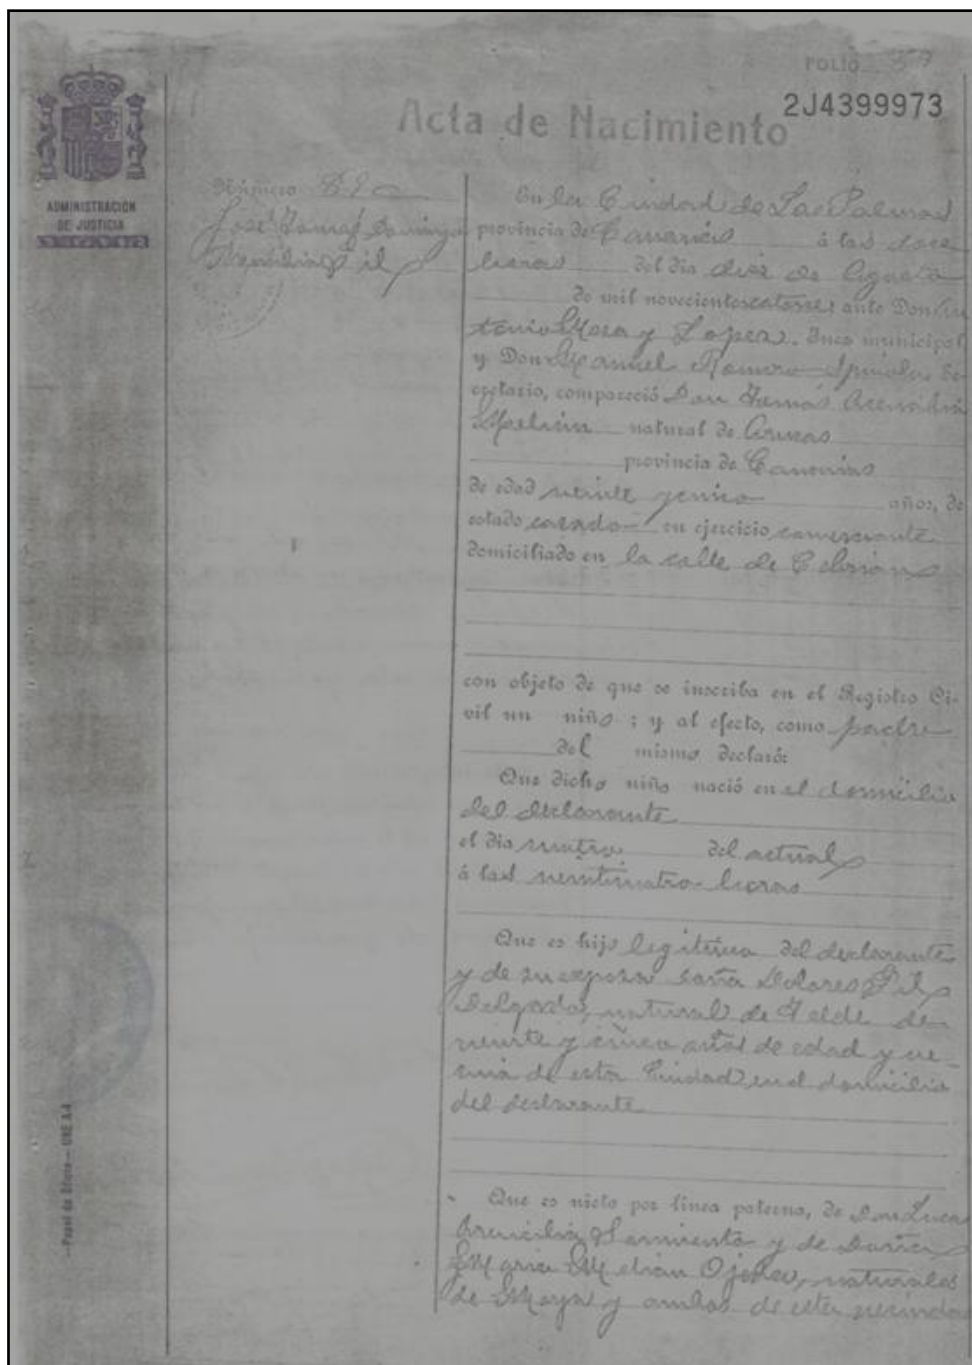 FOLIO 57
2J4399973
Acta de Nacimiento
ADMINISTRACION
DE JUSTICIA
Número
José Tomás Domingo
Arencibia Gil
En la Ciudad de Las Palmas
provincia de Canarias á las doce
horas del dia diez de Agosto
de mil novecientos catorce; ante Don
tonio Mesa y Lopez. Juez municipal
y Don Manuel Romero Spinola Se
cretario, compareció Don Tomás Arencibia
Melian natural de Arucas
provincia de Canarias
de edad veinte y cinco años, de
estado casado en ejercicio comerciante
domiciliado en la calle de Cebrian
con objeto de que se inscriba en el Registro Ci-
vil un niño; y al efecto, como padre
del mismo declaró:
Que dicho niño nació en el domicilio
del declarante
el dia cuatro del actual
á las veinticuatro horas
Que es hijo legitimo del declarante
y de su esposa doña Dolores Gil
Delgado, natural de Telde de
veinte y cinco años de edad y ve-
cina de esta Ciudad en el domicilio
del declarante
Que es nieto por línea paterna, de Don Lucas
Arencibia Sarmiento y de Doña
Maria Melian Ojeda, naturales
de Moya y ambos de esta vecindad
—Papel de Oficio— UNE A-4